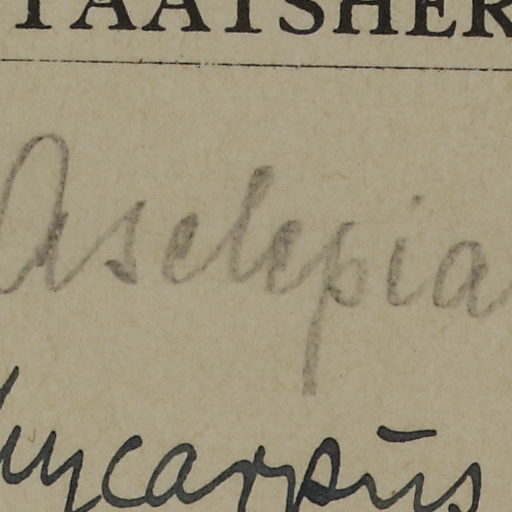 TAATSHER
Asclepia
ycarpus